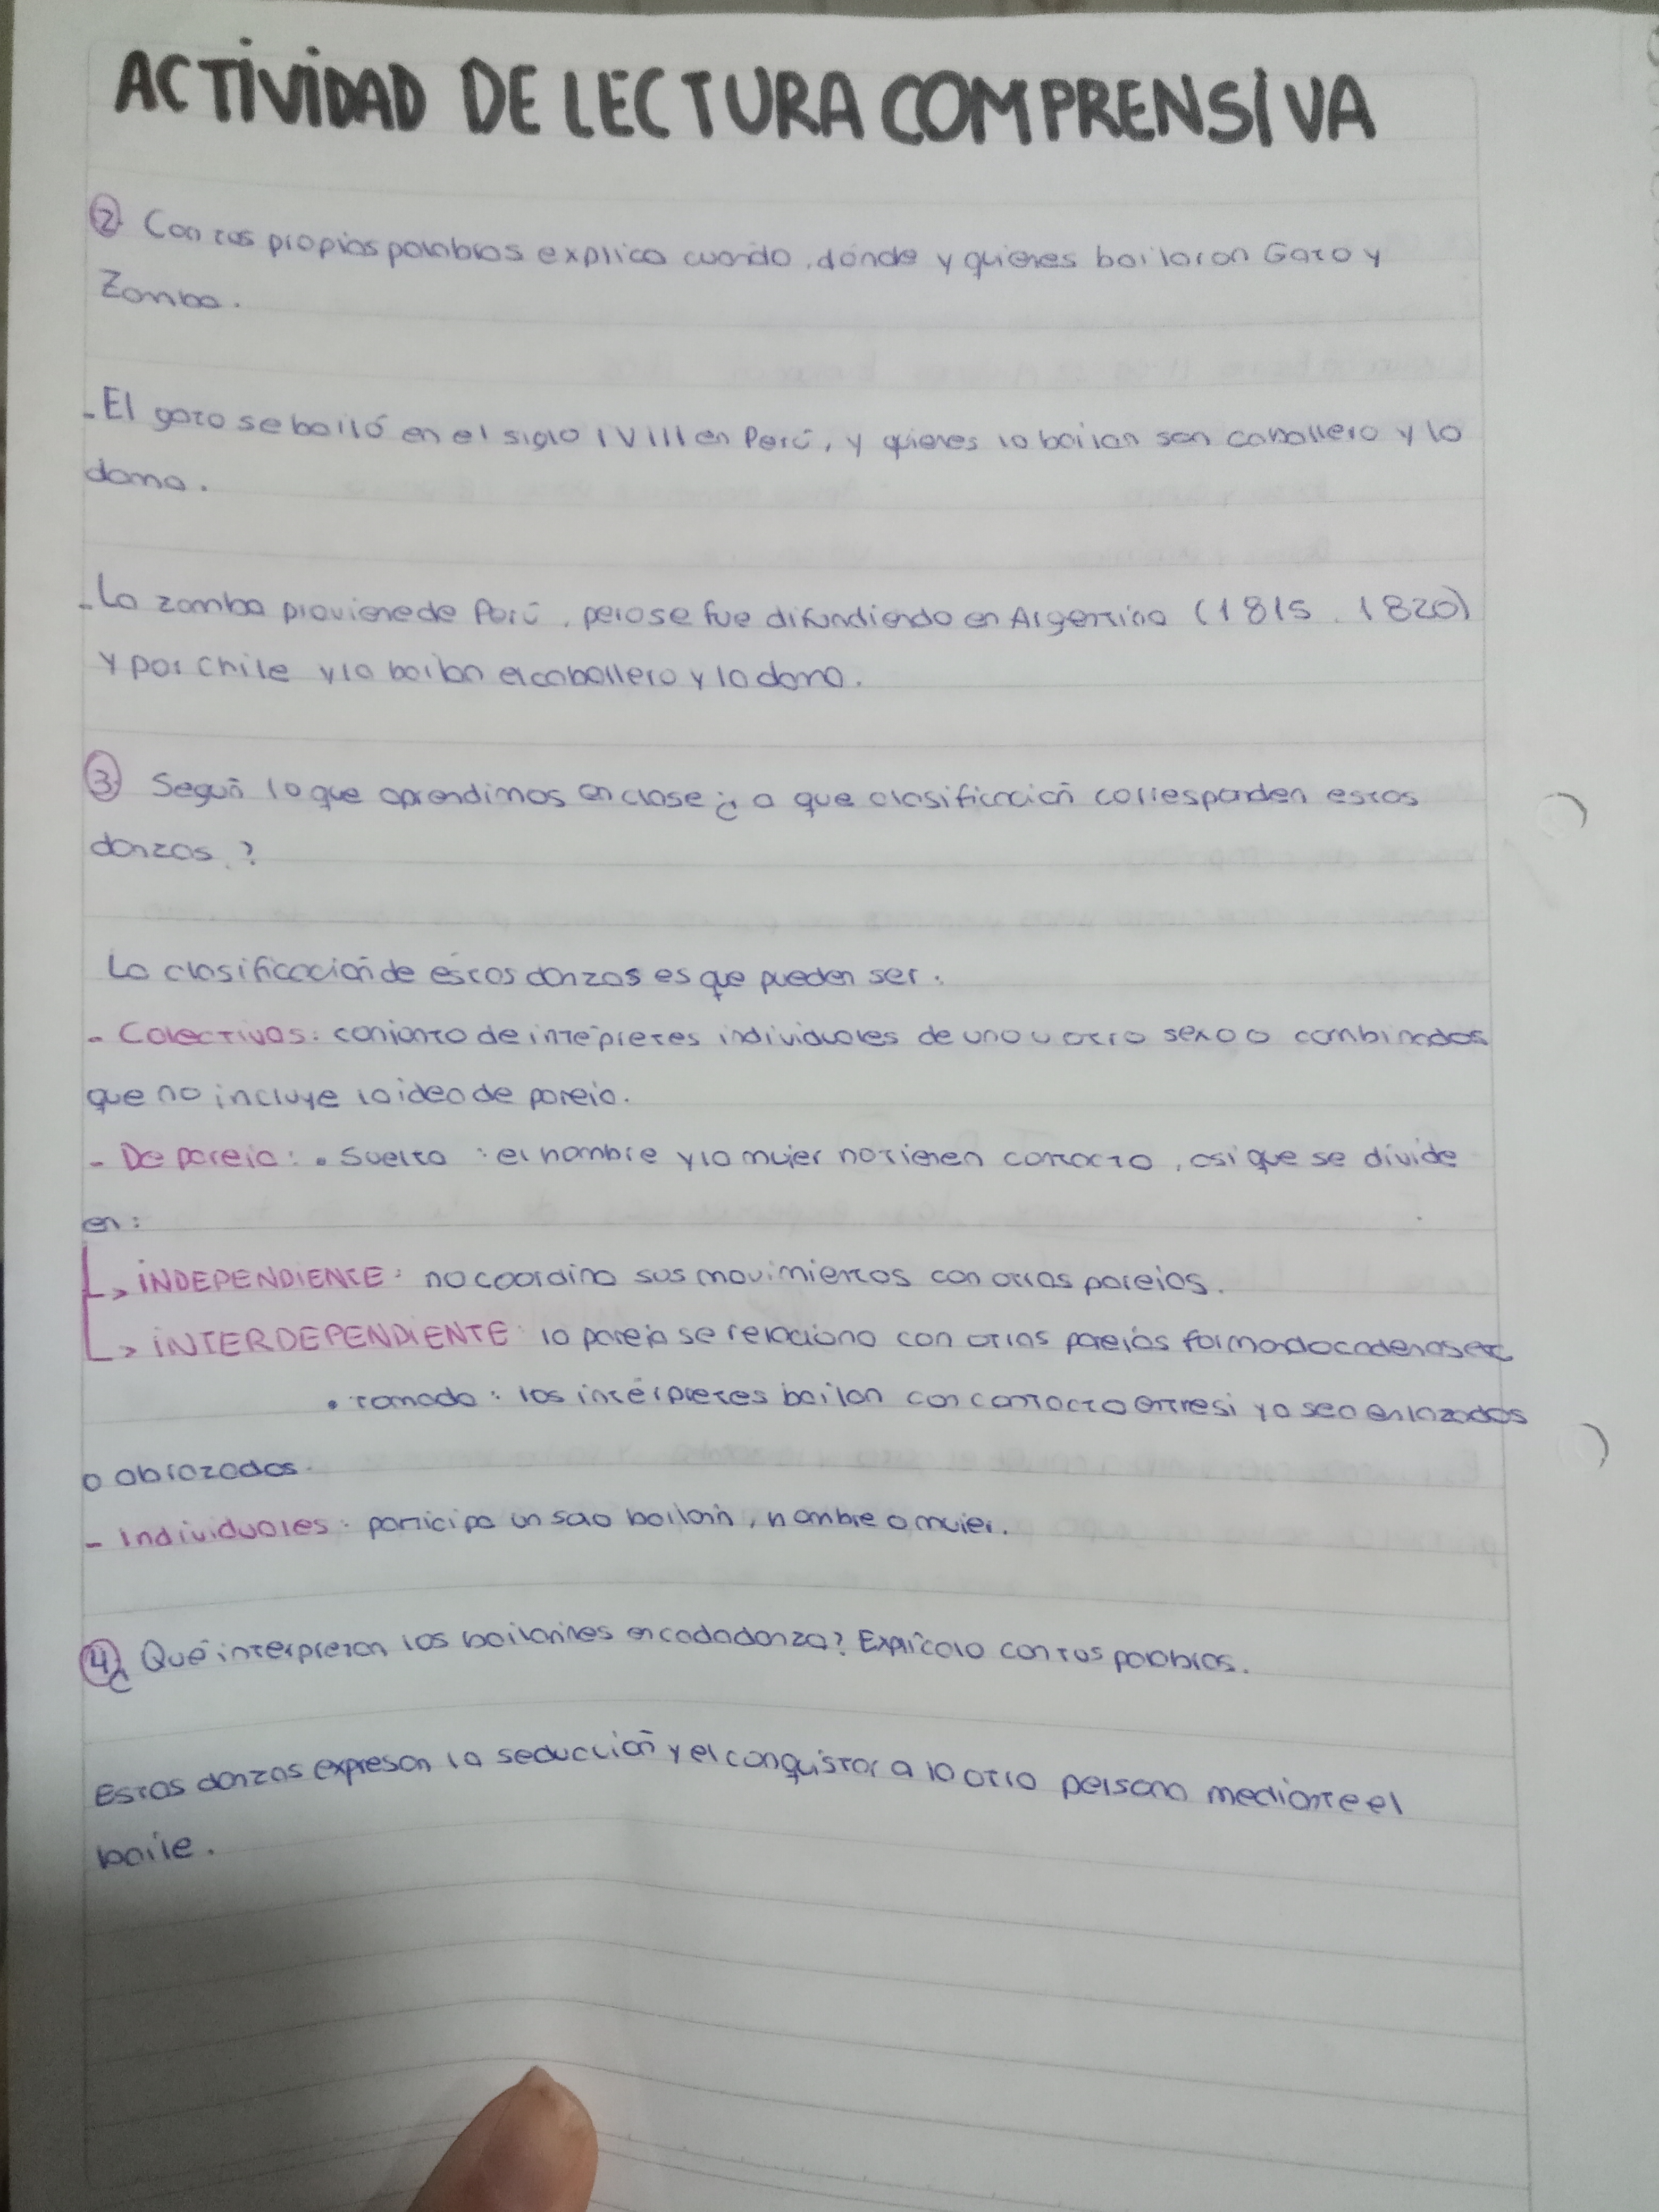 ACTIVIDAD DE LECTURA COMPRENSIVA
2. Con tus propias palabras explica cuándo, dónde y quienes bailaron Gato y
Zamba.
- El gato se bailó en el siglo IVIII en Perú, y quienes lo bailan son caballero y la
dama.
- La zamba proviene de Perú, pero se fue difundiendo en Argentina (1815. 1820)
y por Chile y la bailan el caballero y la dama.
3. Según lo que aprendimos en clase ¿ a que clasificación corresponden estas
danzas.?
La clasificación de estas danzas es que pueden ser:
- Colectivas: conjunto de intépretes individuales de uno u otro sexo o combinados
que no incluye la idea de pareja.
- De pareja: • Suelta : el hombre y la mujer no tienen contacto, asi que se divide
en:
↳ INDEPENDIENTE: no coordina sus movimientos con otras parejas.
↳ INTERDEPENDIENTE: la pareja se relaciona con otras parejas formado cadenas etc
• tomada: los intérpretes bailan con contacto entre si ya sea enlazados
o abrazados.
- Individuales: participa un solo bailarín, hombre o mujer.
4. ¿Qué interpretan los bailarines en cada danza? Explícalo con tus palabras.
Estas danzas expresan la seducción y el conquistar a la otra persona mediante el
baile.